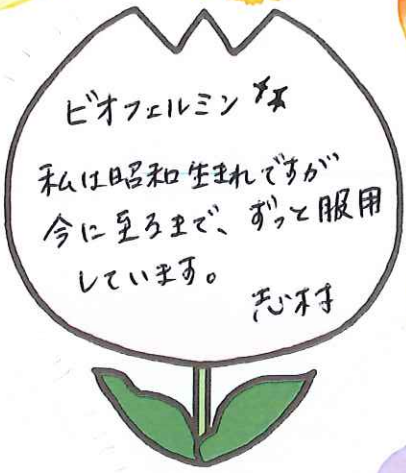 ビオフェルミン☆
私は昭和生まれですが
今に至るまで、ずっと服用
しています。
志村